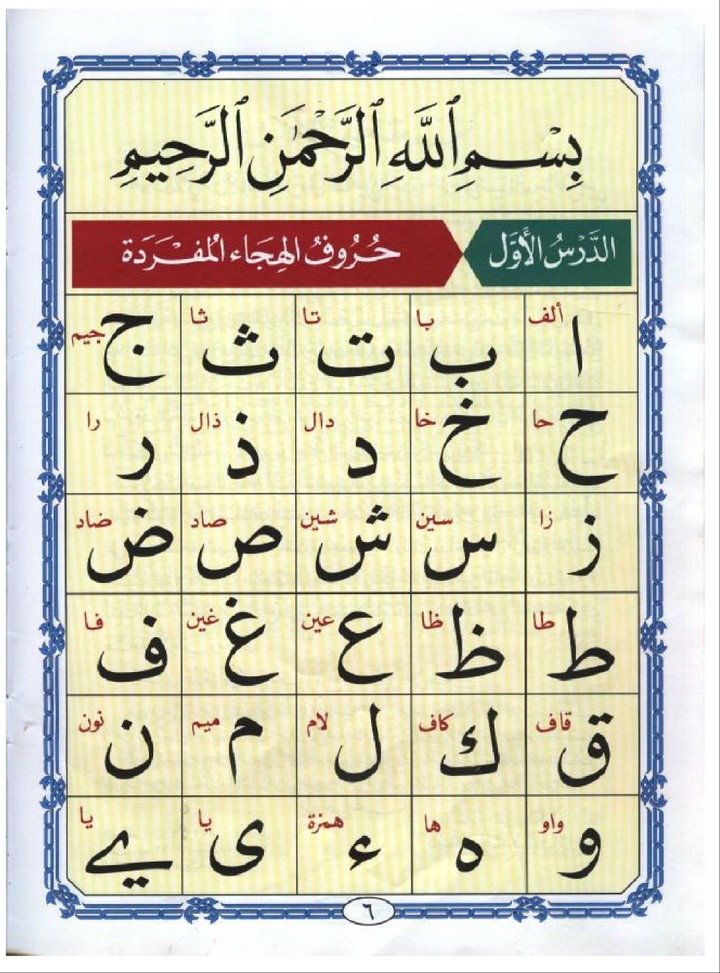 بِسْمِ ٱللَّهِ ٱلرَّحْمَٰنِ ٱلرَّحِيمِ
الدَّرْسُ الْأَوَّل حُرُوفُ الهِجَاء المُفْرَدَة
ا ألف ب با ت تا ث ثا ج جيم
ح حا خ خا د دال ذ ذال ر را
ز زا س سين ش شين ص صاد ض ضاد
ط طا ظ ظا ع عين غ غين ف فا
ق قاف ك كاف ل لام م ميم ن نون
و واو ه ها ء همزة ى يا ے يا
٦